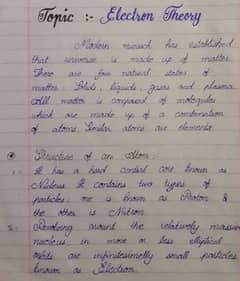 Topic :- Electron Theory
Modern research has established
that universe is made up of matter.
There are four natural states of
matter Solids, liquids, gases and plasma.
All matter is composed of molecules
which are made up of a combination
of atoms Similar atoms are elements.
Structure of an Atom:
1. It has a hard central core known as
Nucleus. It contains two types of
particles one is known as Proton &
the other is Nutron.
2. Revolving around the relatively massive
nucleus, in more or less elliptical
orbits are infinitesimally small particles
known as Electron.